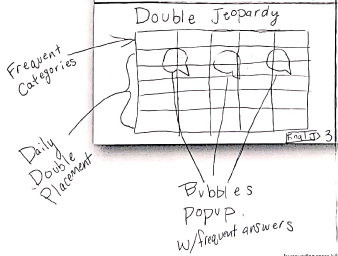 Double Jeopardy
Frequent
Categories
Daily
Double
Placement
Final J
3
Bubbles
Popup.
w/frequent answers